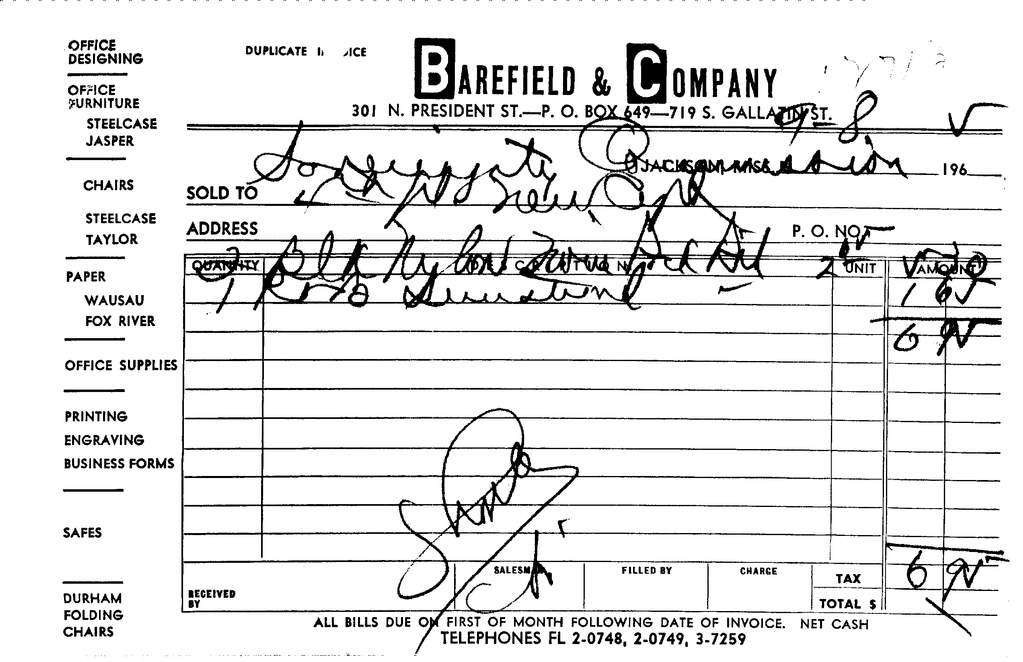 OFFICE
DESIGNING
OFFICE
FURNITURE
STEELCASE
JASPER
CHAIRS
STEELCASE
TAYLOR
PAPER
WAUSAU
FOX RIVER
OFFICE SUPPLIES
PRINTING
ENGRAVING
BUSINESS FORMS
SAFES
DURHAM
FOLDING
CHAIRS
DUPLICATE
BAREFIELD & COMPANY
301 N. PRESIDENT ST.—P. O. BOX 649—719 S. GALLATIN ST.
9-8
JACKSON, MISS. 196
SOLD TO Sovereignty Commission
New Cap
ADDRESS P. O. NO.
QUANTITY UNIT AMOUNT
2 Blk Nylon
1 1 65
6 95
RECEIVED
BY
SALESMAN FILLED BY CHARGE TAX 6 95
TOTAL $
ALL BILLS DUE ON FIRST OF MONTH FOLLOWING DATE OF INVOICE. NET CASH
TELEPHONES FL 2-0748, 2-0749, 3-7259